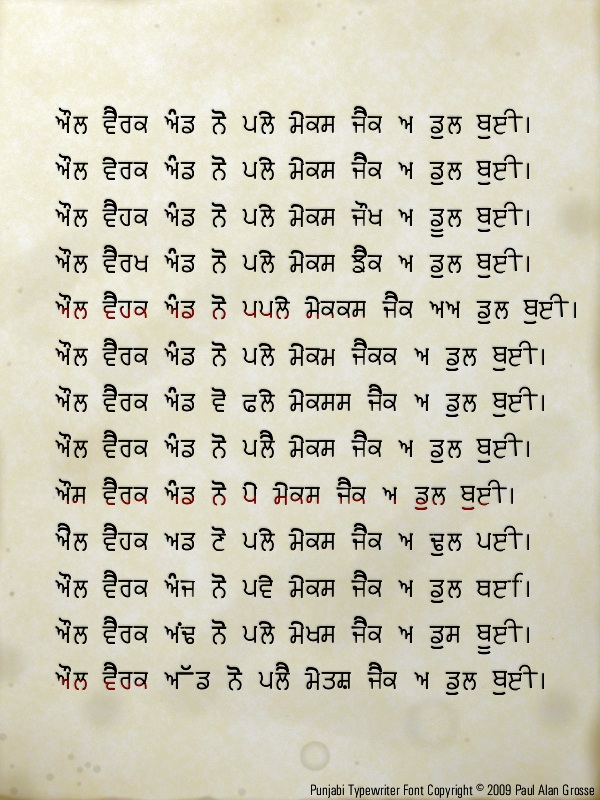 ਔਲ ਵੈਰਕ ਅੰਡ ਨੋ ਪਲੇ ਮੇਕਸ ਜੈਕ ਅ ਡੁਲ ਬੁਈ।
ਔਲ ਵੇਰਕ ਅੰਡ ਨੋ ਪਲੇ ਮੇਕਸ ਜੈਕ ਅ ਡੁਲ ਬੁਈ।
ਔਲ ਵੈਹਕ ਅੰਡ ਨੋ ਪਲੇ ਮੇਕਸ ਜੌਖ ਅ ਡੂਲ ਬੁਈ।
ਔਲ ਵੈਰਖ ਅੰਡ ਨੋ ਪਲੇ ਮੇਕਸ ਡੈਕ ਅ ਡੁਲ ਬੁਈ।
ਔਲ ਵੈਹਕ ਅੰਡ ਨੋ ਪਪਲੇ ਮੇਕਕਸ ਜੈਕ ਅਅ ਡੁਲ ਬੁਈ।
ਔਲ ਵੈਰਕ ਅੰਡ ਨੋ ਪਲੇ ਮੇਕਮ ਜੈਕਕ ਅ ਡੁਲ ਬੁਈ।
ਔਲ ਵੈਰਕ ਅੰਡ ਵੋ ਫਲੇ ਮੇਕਸਸ ਜੈਕ ਅ ਡੁਲ ਬੁਈ।
ਔਲ ਵੈਰਕ ਅੰਡ ਨੋ ਪਲੈ ਮੇਕਸ ਜੈਕ ਅ ਡੁਲ ਬੁਈ।
ਔਸ ਵੈਰਕ ਅੰਡ ਨੋ ਪੇ ਮੇਕਸ ਜੈਕ ਅ ਡੁਲ ਬੁਈ।
ਐਲ ਵੈਹਕ ਅਡ ਣੋ ਪਲੇ ਮੇਕਸ ਜੈਕ ਅ ਢੁਲ ਪਈ।
ਔਲ ਵੈਰਕ ਅੰਜ ਨੋ ਪਵੇ ਮੇਕਸ ਜੈਕ ਅ ਡੁਲ
ਔਲ ਵੈਰਕ ਅੰਢ ਨੋ ਪਲੇ ਮੇਖਸ ਜੈਕ ਅ ਡੁਸ ਬੂਈ।
ਔਲ ਵੈਰਕ ਅੱਡ ਨੋ ਪਲੈ ਮੇਤਸ਼ ਜੈਕ ਅ ਡੁਲ ਬੁਈ।
Punjabi Typewriter Font Copyright © 2009 Paul Alan Grosse